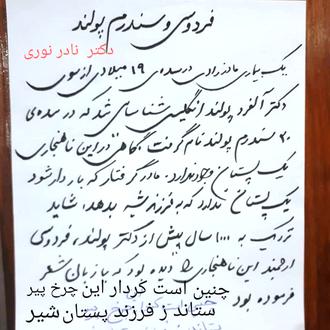 فردوسی و سندرم پولند
دکتر نادر نوری
یک بیماری مادرزادی در سده‌ی ۱۹ میلادی از سوی
دکتر آلفرد پولند انگلیسی شناسایی شد که در سده‌ی
۲۰ سندرم پولند نام گرفت. گاهی در این ناهنجاری
یک پستان وجود ندارد. مادر گرفتار که باردار شود
یک پستان ندارد که به فرزند شیر بدهد، شاید
نزدیک به ۱۰۰۰ سال پیش از دکتر پولند، فردوسی
ارجمند این ناهنجاری را دیده بود که با زبان شعر
فرموده بود
چنین است کردار این چرخ پیر
ستاند ز فرزند پستان شیر